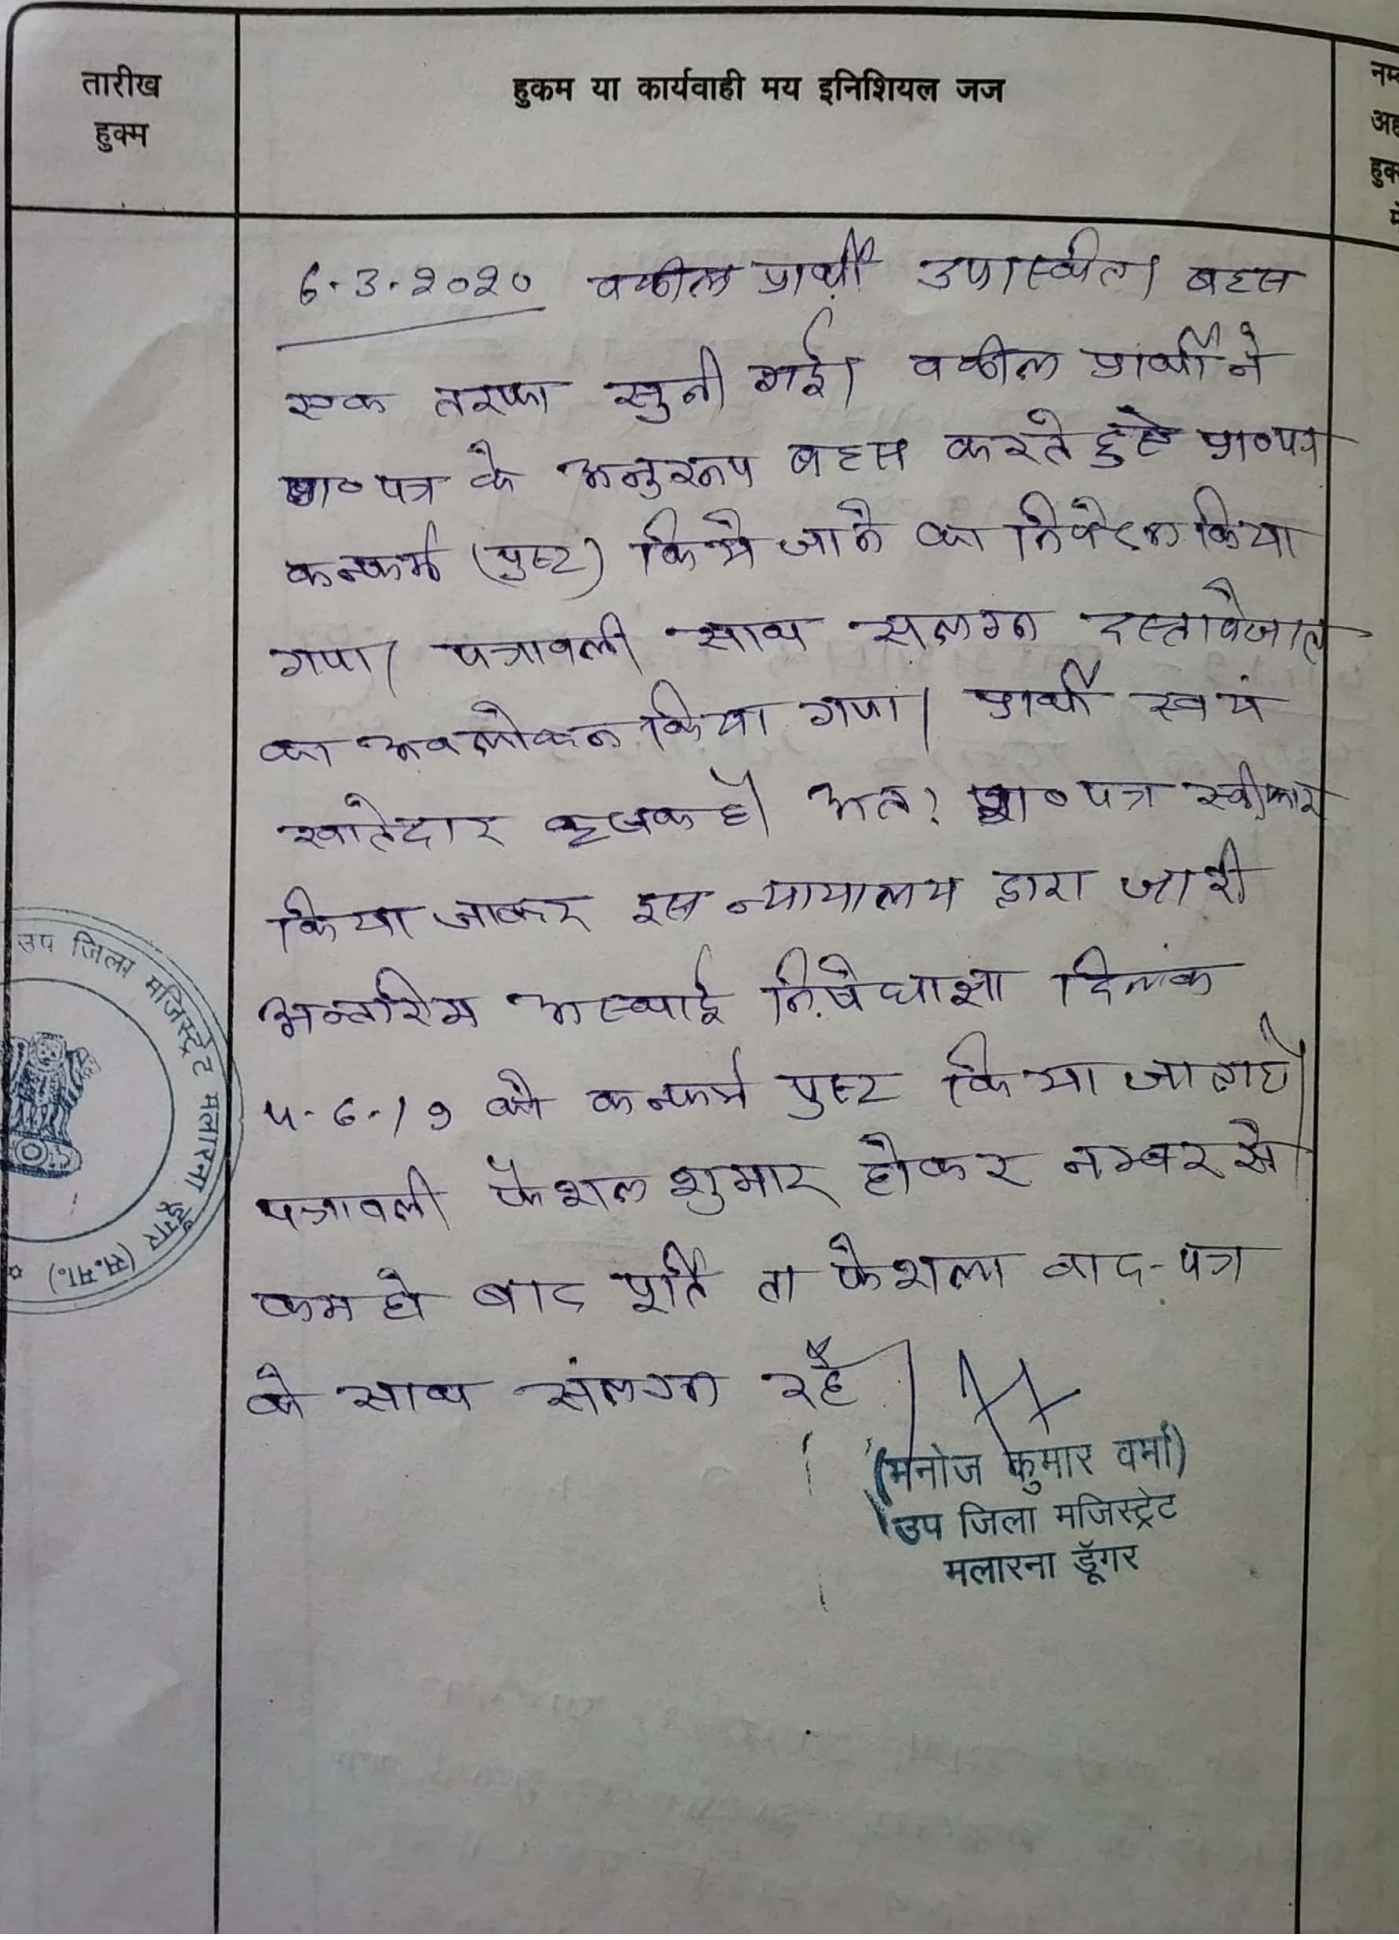 तारीख
हुक्म
हुकम या कार्यवाही मय इनिशियल जज
नम्ब
अह
हुक
में
6.3.2020 वकील प्रार्थी उपस्थित। बहस
एक तरफा सुनी गई। वकील प्रार्थी ने
प्रा०पत्र के अनुरूप बहस करते हुऐ प्रा०पत्र
कन्फर्म (पुष्ट) किये जाने का निवेदन किया
गया। पत्रावली साथ सलग्न दस्तावेजात
का अवलोकन किया गया। प्रार्थी स्वयं
खातेदार कृषक है। अतः प्रा०पत्र स्वीकार
किया जाकर इस न्यायालय द्वारा जारी
अन्तरिम अस्थाई निषेधाज्ञा दिनांक
4-6-19 को कन्फर्म पुष्ट किया जाता है।
पत्रावली फैशल शुमार होकर नम्बर से
कम हो बाद पूर्ति ता फैशला वाद-पत्र
के साथ संलग्न रहे।
(मनोज कुमार वर्मा)
उप जिला मजिस्ट्रेट
मलारना डूँगर
उप जिला मजिस्ट्रेट मलारना डूँगर (स.मा.)